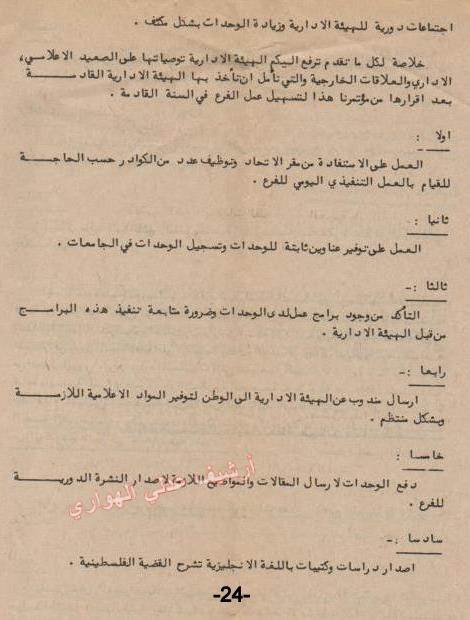 اجتماعات دورية للهيئة الادارية وزيادة الوحدات بشكل مكثف .
خلاصة لكل ما تقدم ترفع اليكم الهيئة الادارية توصياتها على الصعيد الاعلامي،
الاداري والعلاقات الخارجية والتي تأمل ان تأخذ بها الهيئة الادارية القادمة
بعد اقرارها من مؤتمرنا هذا لتسهيل عمل الفرع في السنة القادمة .
اولا :
العمل على الاستفادة من مقر الاتحاد وتوظيف عدد من الكوادر حسب الحاجة
للقيام بالعمل التنفيذي اليومي للفرع .
ثانيا :
العمل على توفير عناوين ثابتة للوحدات وتسجيل الوحدات في الجامعات .
ثالثا :-
التأكد من وجود برامج عمل لدى الوحدات وضرورة متابعة تنفيذ هذه البرامج
من قبل الهيئة الادارية .
رابعا :-
ارسال مندوب عن الهيئة الادارية الى الوطن لتوفير المواد الاعلامية اللازمة
وبشكل منتظم .
خامسا :
دفع الوحدات لارسال المقالات والمواضيع اللازمة لاصدار النشرة الدورية
للفرع .
أرشيف علي الهواري
سادسا :-
اصدار دراسات وكتيبات باللغة الانجليزية تشرح القضية الفلسطينية .
-24-